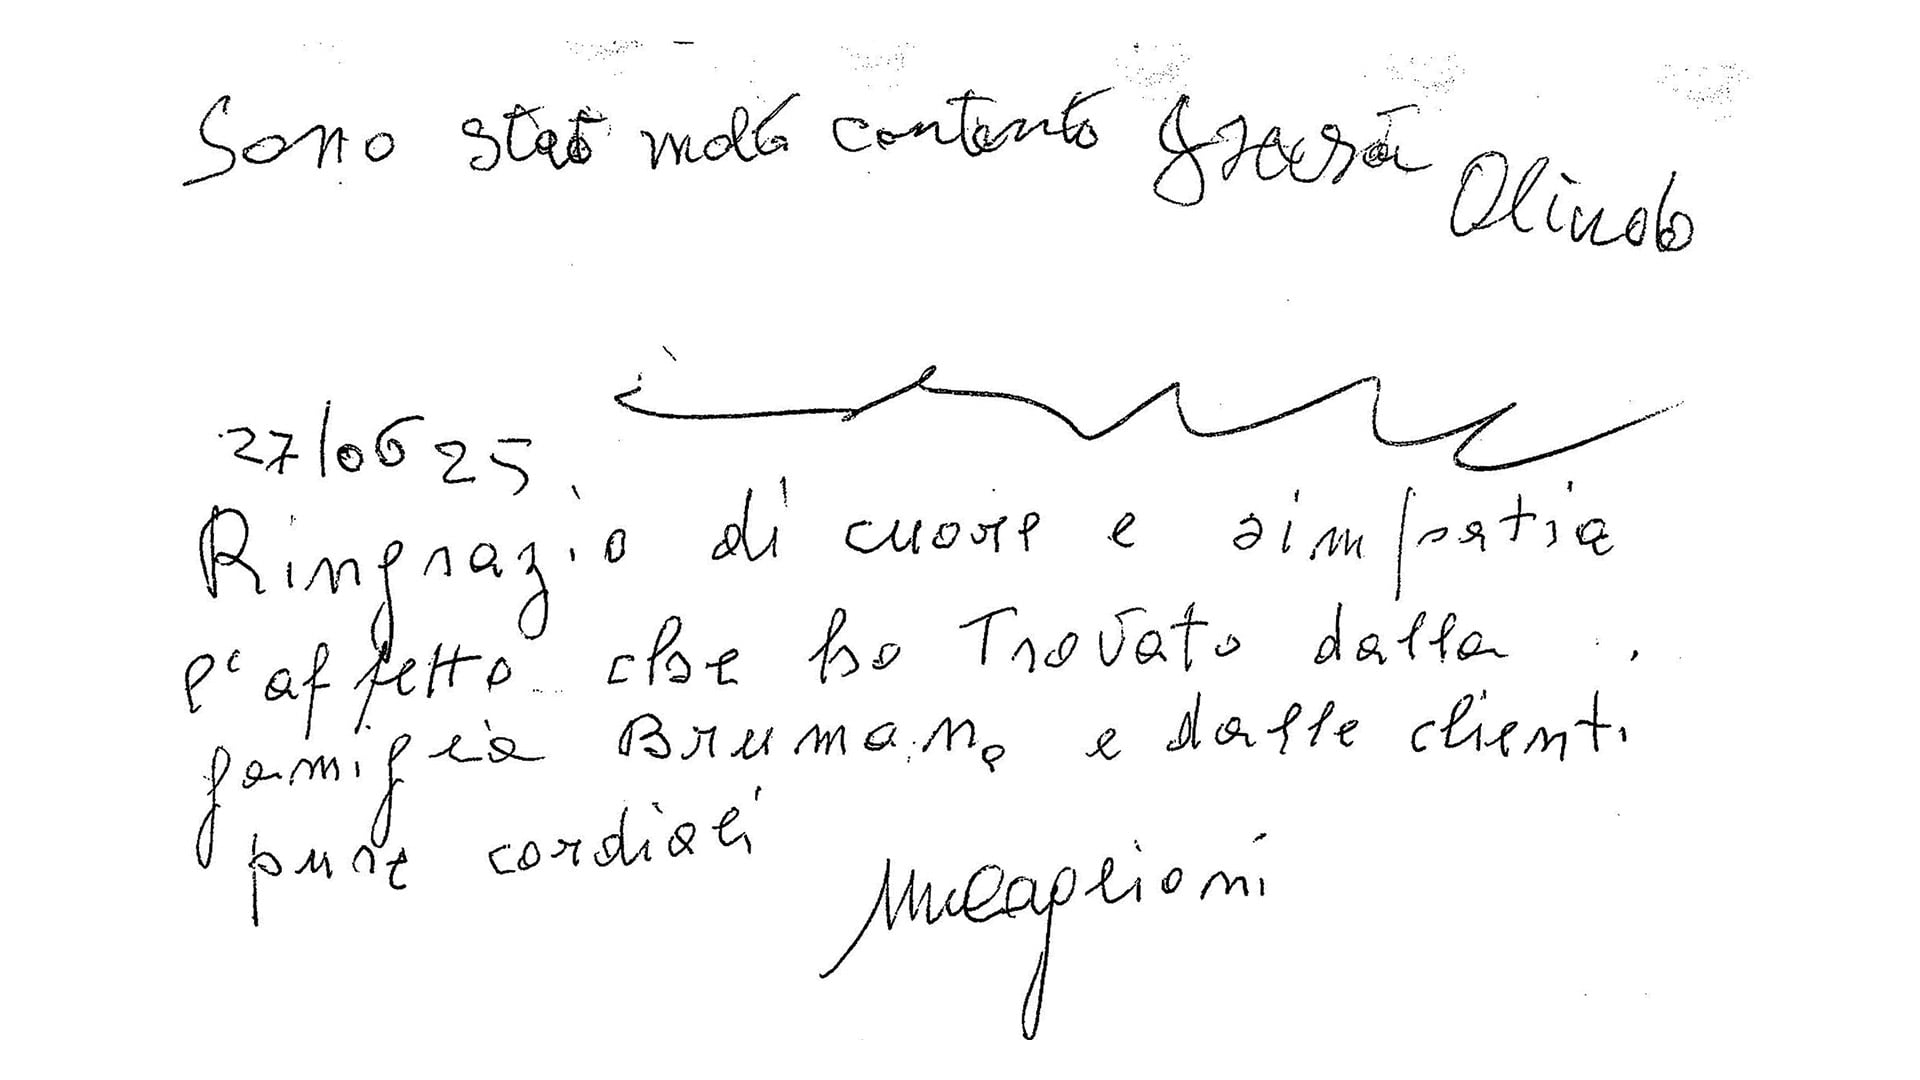 Sono stato molto contento Olindo
27/06 25
Ringrazio di cuore e simpatia
l'affetto che ho Trovato dalla
famiglia e dalle clienti
pure cordiali